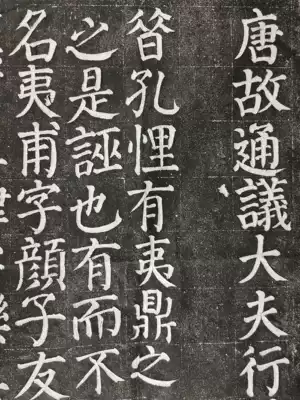 唐故通議大夫行
昔孔悝有夷鼎之
之是誣也有而不
名夷甫字顏子友